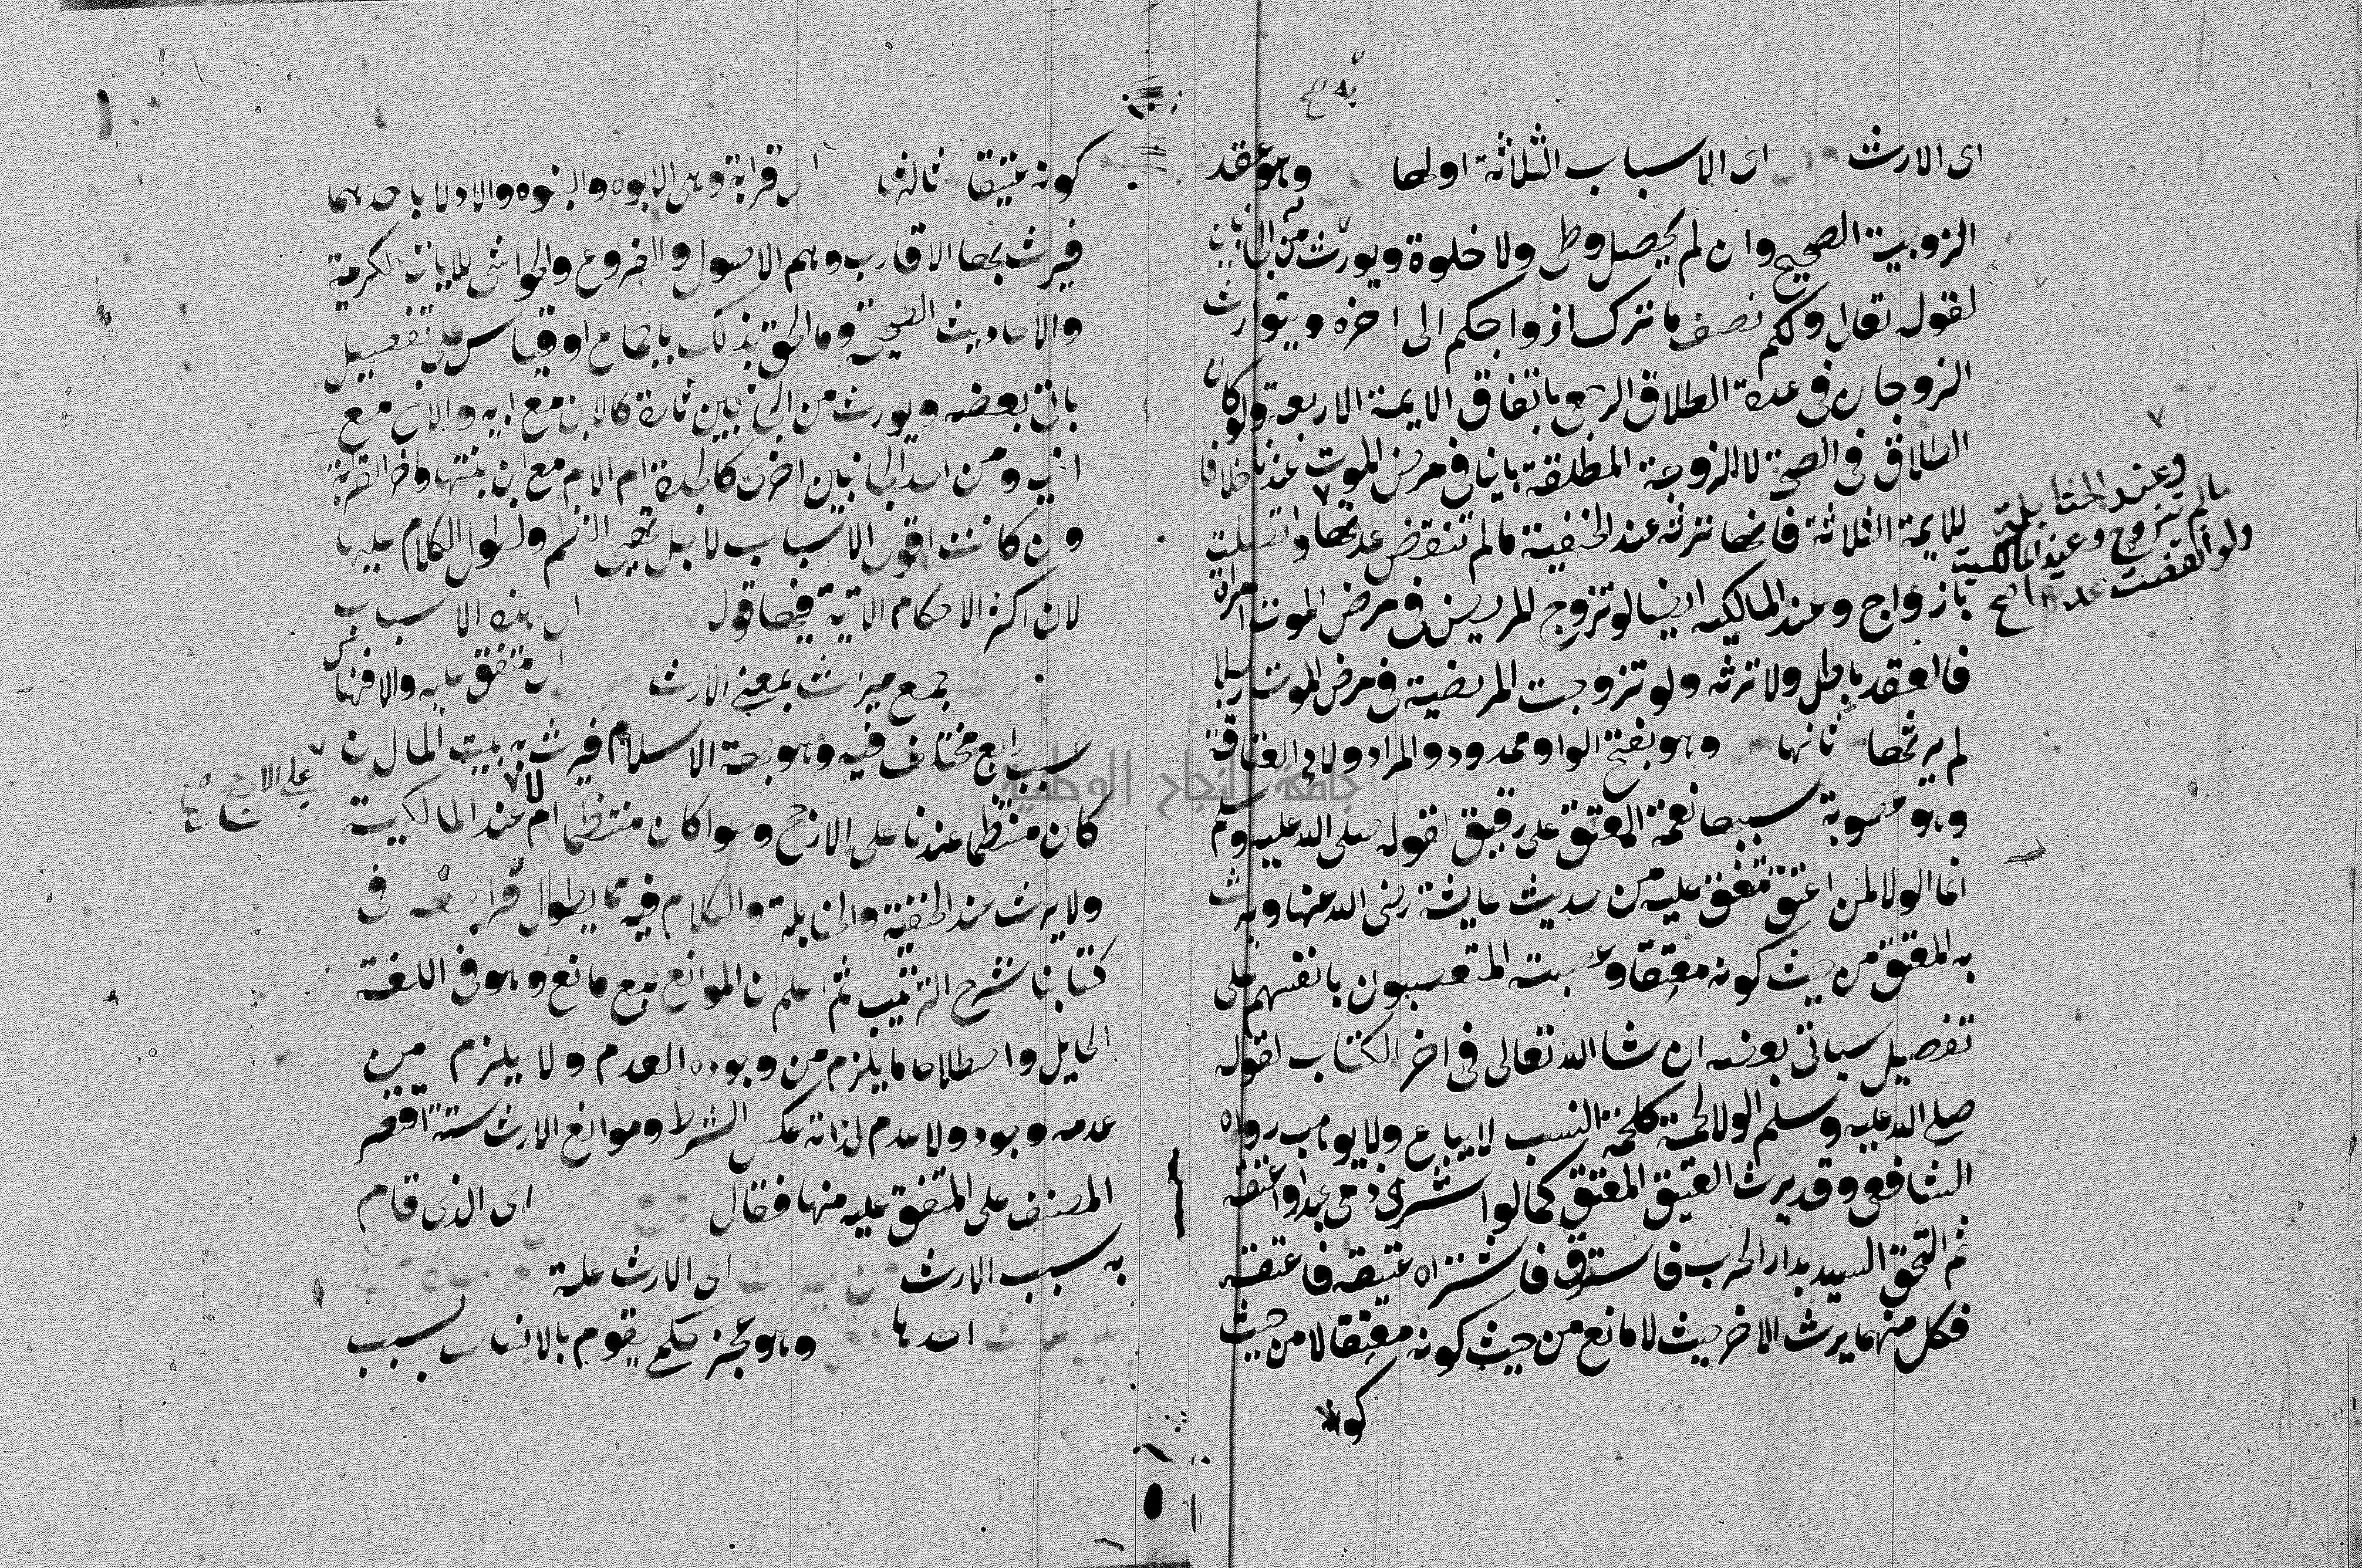 به صح
اى الارث اى الاسباب الثلاثة اولها وهو عقد
الزوجية الصحيح وان لم يحصل وطى ولا خلوة ويورث به من الجانبين
لقوله تعالى ولكم نصف ما ترك ازواجكم الى اخره ويتوارث
الزوجان فى عدة الطلاق الرجعى باتفاق الايمة الاربعة ولو كان
الطلاق فى الصحة لا الزوجة المطلقة باينا فى مرض الموت عندنا خلافا
للايمة الثلاثة فانها ترثه عند الحنفية ما لم تنقض عدتها واتصلت
بازواج وعند المالكيه ايضا لو تزوج المريض فى مرض الموت امراة
فالعقد باطل ولا ترثه ولو تزوجت المريضة فى مرض الموت رجلا
لم يرثها ثانها وهو بفتح الواو ممدود والمراد ولا العتاقة
وهو عصوبة سببها نعمة المعتق على رقيق لقوله صلى الله عليه وسلم
انما الولا لمن اعتق متفق عليه من حديث عايشة رضى الله عنها ويرث
به المعتق من حيث كونه معتقا وعصبته المتعصبون بانفسهم على
تفصيل سياتى بعضه ان شا الله تعالى فى اخر الكتاب لقوله
صلى الله عليه وسلم الولا لحمة كلحمة النسب لا يباع ولا يوهب رواه
الشافعى وقد يرث العتيق المعتق كما لو اشترى ذمى عبدا واعتقه
ثم التحق السيد بدار الحرب فاسترق فاشتراه عتيقه فاعتقه
فكل منهما يرث الاخر حيث لا مانع من حيث كونه معتقا لا من حيث
كونه
وعند الحنابلة
ما لم تتزوج وعند المالكية
ولو انقضت عدتها صح
كونه عتيقا ثالثها اى قرابة وهى الابوه والبنوه والادلا باحدهما
فيرث بها الاقارب وهم الاصول والفروع والحواشى للايات الكريمة
والاحاديث الصحيحة وما الحق بذلك باجماع او قياس على تفصيل
ياتى بعضه ويورث من الجانبين تارة كالابن مع ابيه والاخ مع
اخيه ومن احد الجانبين اخرى كالجدة ام الام مع ابن بنتها واخر القرابة
وان كانت اقوى الاسباب لاجل النظم ولطول الكلام عليها
لان اكثر الاحكام الاتية فيها قوله اى هذه الاسباب
جمع ميراث بمعنى الارث اى متفق عليه والا فثم
سبب رابع مختلف فيه وهو جهة الاسلام فيرث به بيت المال ان
كان منتظما عندنا على الارجح وسوا كان منتظما ام لا عند المالكية
ولا يرث عند الحنفية والحنابلة والكلام فيه مما يطول فراجعه فى
كتابنا شرح الترتيب ثم اعلم ان الموانع جمع مانع وهو فى اللغة
الحايل واصطلاحا ما يلزم من وجوده العدم ولا يلزم من
عدمه وجود ولا عدم لذاته عكس الشرط وموانع الارث ستة اقتصر
المصنف على المتفق عليه منها فقال اى الذى قام
به سبب الارث اى الارث علة
احدها وهو عجز حكمى يقوم بالانسان بسبب
على الارجح صح
جامعة النجاح الوطنية